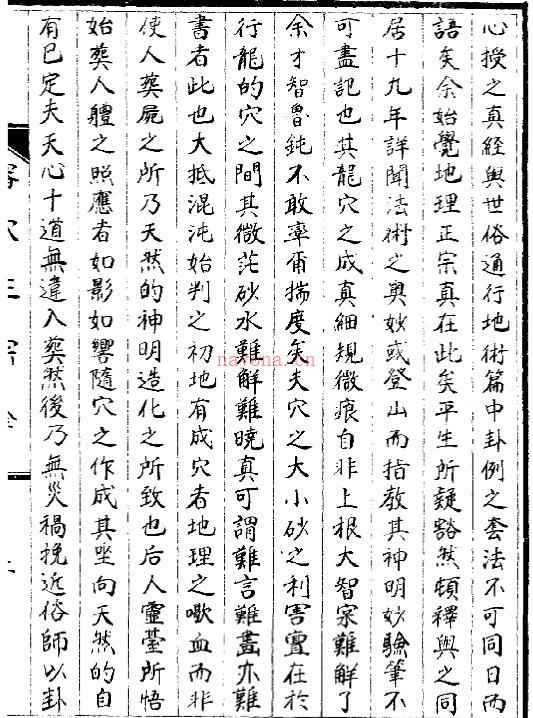 心授之真經與世俗通行地術篇中卦例之套法不可同日而
語矣余始覺地理正宗真在此矣平生所疑豁然頓釋與之同
居十九年詳聞法術之奧妙或登山而指教其神明妙驗筆不
可盡記也其龍穴之成真細規微痕自非上根大智寀難解了
余才智魯鈍不敢率爾揣度矣夫穴之大小砂之利害實在於
行龍的穴之間其微茫砂水難解難曉真可謂難言難盡亦難
書者此也大抵混沌始判之初地有成穴者地理之歃血而非
使人葬屍之所乃天然的神明造化之所致也后人靈臺所悟
始葬人軆之照應者如影如響隨穴之作成其坐向天然的自
有已定夫天心十道無違入葬然後乃無災禍挽近俗師以卦
nayona.cn